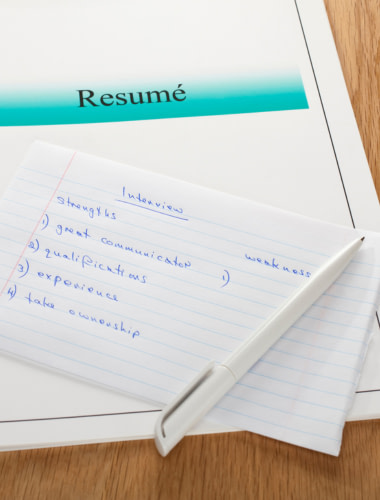 Resumé
Interview
Strengths
1) great communicator
2) qualifications
3) experience
4) take ownership
weakness
1)